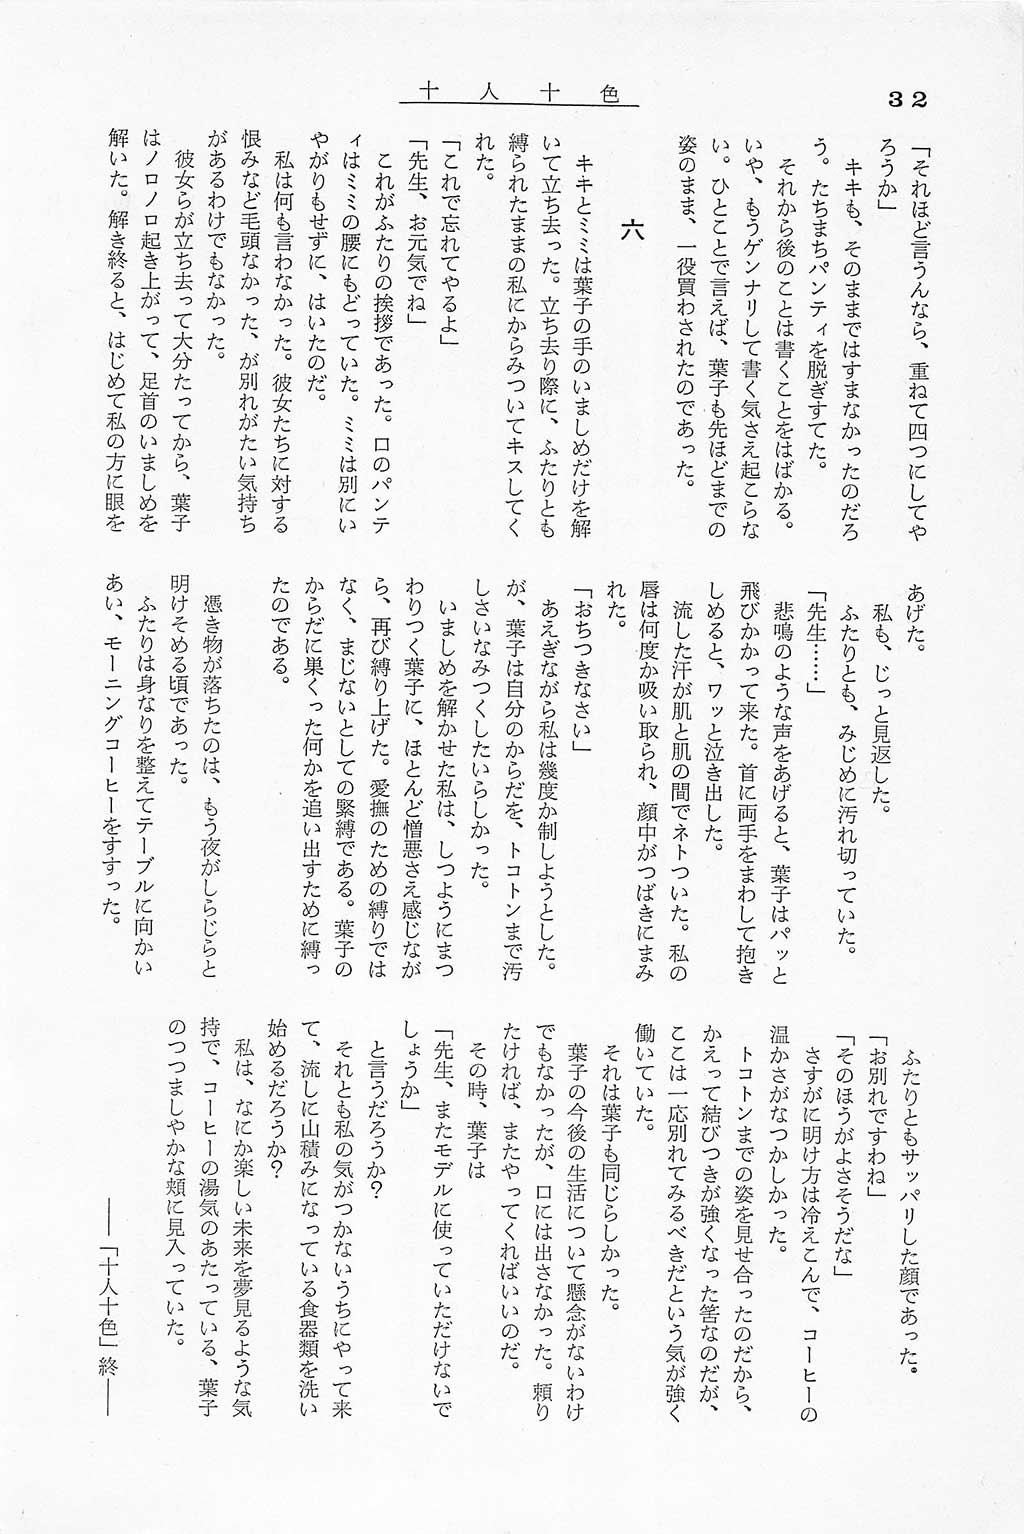 32
十人十色
「それほど言うんなら、重ねて四つにしてや
ろうか」
キキも、そのままではすまなかったのだろ
う。たちまちパンティを脱ぎすてた。
それから後のことは書くことをはばかる。
いや、もうゲンナリして書く気さえ起こらな
い。ひとことで言えば、葉子も先ほどまでの
姿のまま、一役買わされたのであった。
六
キキとミミは葉子の手のいましめだけを解
いて立ち去った。立ち去り際に、ふたりとも
縛られたままの私にからみついてキスしてく
れた。
「これで忘れてやるよ」
「先生、お元気でね」
これがふたりの挨拶であった。口のパンテ
ィはミミの腰にもどっていた。ミミは別にい
やがりもせずに、はいたのだ。
私は何も言わなかった。彼女たちに対する
恨みなど毛頭なかった、が別れがたい気持ち
があるわけでもなかった。
彼女らが立ち去って大分たってから、葉子
はノロノロ起き上がって、足首のいましめを
解いた。解き終ると、はじめて私の方に眼を
あげた。
私も、じっと見返した。
ふたりとも、みじめに汚れ切っていた。
「先生……」
悲鳴のような声をあげると、葉子はパッと
飛びかかって来た。首に両手をまわして抱き
しめると、ワッと泣き出した。
流した汗が肌と肌の間でネトついた。私の
唇は何度か吸い取られ、顔中がつばきにまみ
れた。
「おちつきなさい」
あえぎながら私は幾度か制しようとした。
が、葉子は自分のからだを、トコトンまで汚
しさいなみつくしたいらしかった。
いましめを解かせた私は、しつようにまつ
わりつく葉子に、ほとんど憎悪さえ感じなが
ら、再び縛り上げた。愛撫のための縛りでは
なく、まじないとしての緊縛である。葉子の
からだに巣くった何かを追い出すために縛っ
たのである。
憑き物が落ちたのは、もう夜がしらじらと
明けそめる頃であった。
ふたりは身なりを整えてテーブルに向かい
あい、モーニングコーヒーをすすった。
ふたりともサッパリした顔であった。
「お別れですわね」
「そのほうがよさそうだな」
さすがに明け方は冷えこんで、コーヒーの
温かさがなつかしかった。
トコトンまでの姿を見せ合ったのだから、
かえって結びつきが強くなった筈なのだが、
ここは一応別れてみるべきだという気が強く
働いていた。
それは葉子も同じらしかった。
葉子の今後の生活について懸念がないわけ
でもなかったが、口には出さなかった。頼り
たければ、またやってくればいいのだ。
その時、葉子は
「先生、またモデルに使っていただけないで
しょうか」
と言うだろうか？
それとも私の気がつかないうちにやって来
て、流しに山積みになっている食器類を洗い
始めるだろうか？
私は、なにか楽しい未来を夢見るような気
持で、コーヒーの湯気のあたっている、葉子
のつつましやかな頬に見入っていた。
――「十人十色」終――